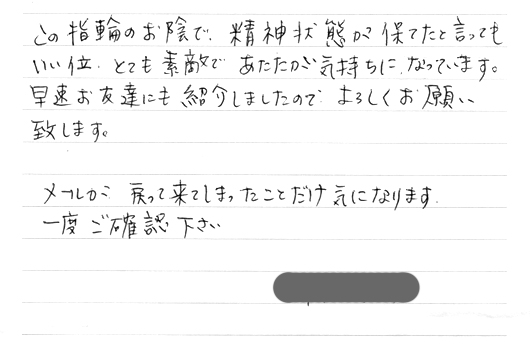 この指輪のお陰で、精神状態が保てたと言っても
いい位、とても素敵であたたかい気持ちになっています。
早速お友達にも紹介しましたのでよろしくお願い
致します。
メールが戻って来てしまったことだけ気になります。
一度ご確認下さい